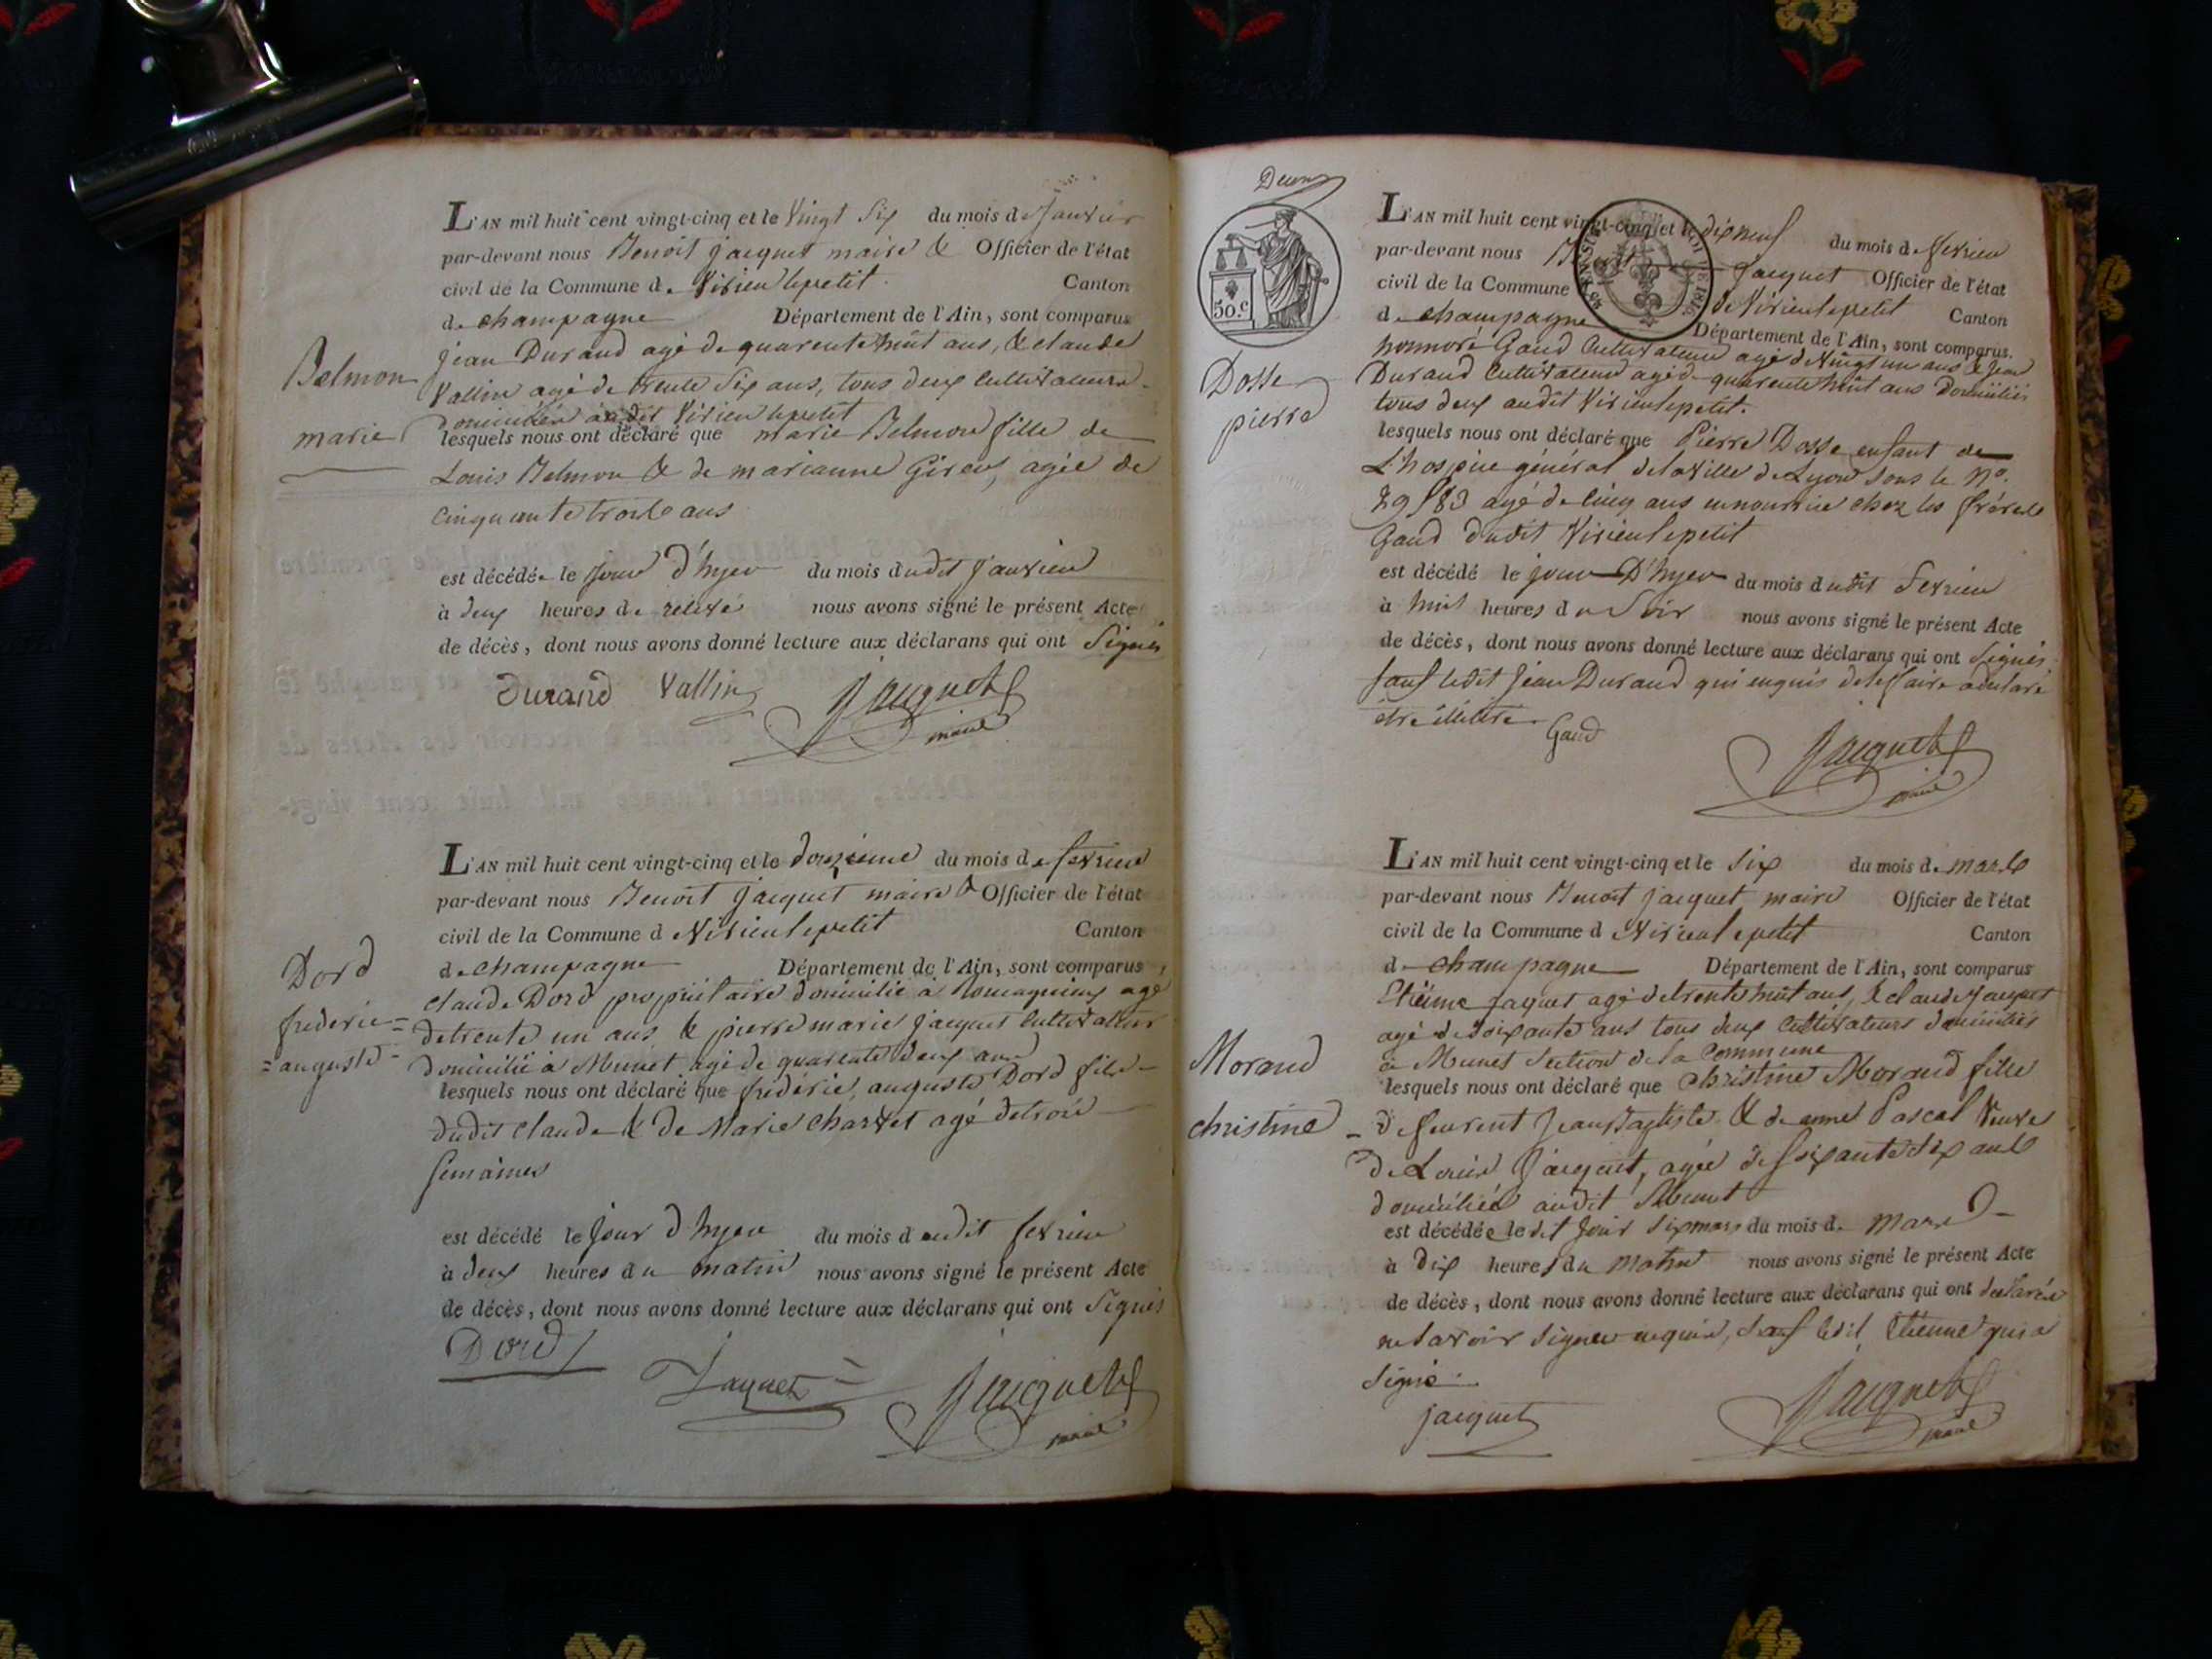 L'AN mil huit cent vingt-cinq et le Vingt Six du mois de Janvier
par-devant nous Benoit Jacquet maire & Officier de l'état
civil de la Commune de Virieu lepetit. Canton
de champagne Département de l'Ain, sont comparus
Belmon
marie
jean Durand agé de quarente huit ans, & claude
Vallin agé de trente Six ans, tous deux Cultivateurs
domiciliés audit Virieu lepetit
lesquels nous ont déclaré que marie Belmon fille de
Louis Belmon & de marianne agée de
cinquante trois ans
est décédée le jour d'hyer du mois dudit janvier
à deux heures de relevé nous avons signé le présent Acte
de décès, dont nous avons donné lecture aux déclarans qui ont Signés
Durand Vallin Jacquet
maire
L'AN mil huit cent vingt-cinq et le douzieme du mois de fevrier
par-devant nous Benoit Jacquet maire & Officier de l'état
civil de la Commune d Virieu lepetit Canton
de champagne Département de l'Ain, sont comparus
Dord
frederic=
=auguste=
claude Dord propriétaire domicilié à agé
de trente un ans, & pierre marie jacquet Cultivateur
domicilié à Munet agé de quarente deux ans
lesquels nous ont déclaré que frédéric, auguste Dord fils
dudit claude & de Marie Charvet agé de trois
semaines
est décédé le jour d'hyer du mois dudit fevrier
à deux heures du matin nous avons signé le présent Acte
de décès, dont nous avons donné lecture aux déclarans qui ont Signés
Dord
Jaquet Jacquet
maire
Deux
50.c
L'AN mil huit cent vingt-cinq et le dixneuf du mois de fevrier
par-devant nous Benoit Jacquet Officier de l'état
civil de la Commune de Virieu lepetit Canton
de champagne Département de l'Ain, sont comparus.
Dosse
pierre
honnoré Gaud Cultivateur agé de Vingt un ans & Jean
Durand Cultivateur agé de quarente huit ans Domiciliés
tous deux audit Virieu lepetit.
lesquels nous ont déclaré que Pierre Dosse enfant de
L'hospice général de la ville de Lyon sous le No.
agé de cinq ans en nourrice chez les frères
Gaud dudit Virieu lepetit
est décédé le jour D'hyer du mois dudit Fevrier
à huit heures du Soir nous avons signé le présent Acte
de décès, dont nous avons donné lecture aux déclarans qui ont Signés
sauf ledit Jean Durand qui enquis de le faire a déclaré
être illitéré. Gaud
Jacquet
maire
L'AN mil huit cent vingt-cinq et le Six du mois de mars
par-devant nous Benoit Jacquet maire Officier de l'état
civil de la Commune d Virieu lepetit Canton
de champagne Département de l'Ain, sont comparus
Morand
christine
Etiénne jaquet agé de trente huit ans, & claude Jacquet
agé de soixante ans tous deux Cultivateurs domiciliés
à Munet Section de la Commune
lesquels nous ont déclaré que Christine Morand fille
de feu Jean Baptiste & de anne Pascal Veuve
de Louis Jacquet, agée de soixante dix ans
domiciliée audit Munet
est décédée ledit jour six mars du mois de Mars
à dix heures du Matin nous avons signé le présent Acte
de décès, dont nous avons donné lecture aux déclarans qui ont déclarés
ne savoir signer enquis, sauf ledit Etienne qui a
signé.
jacquet Jacquet
maire